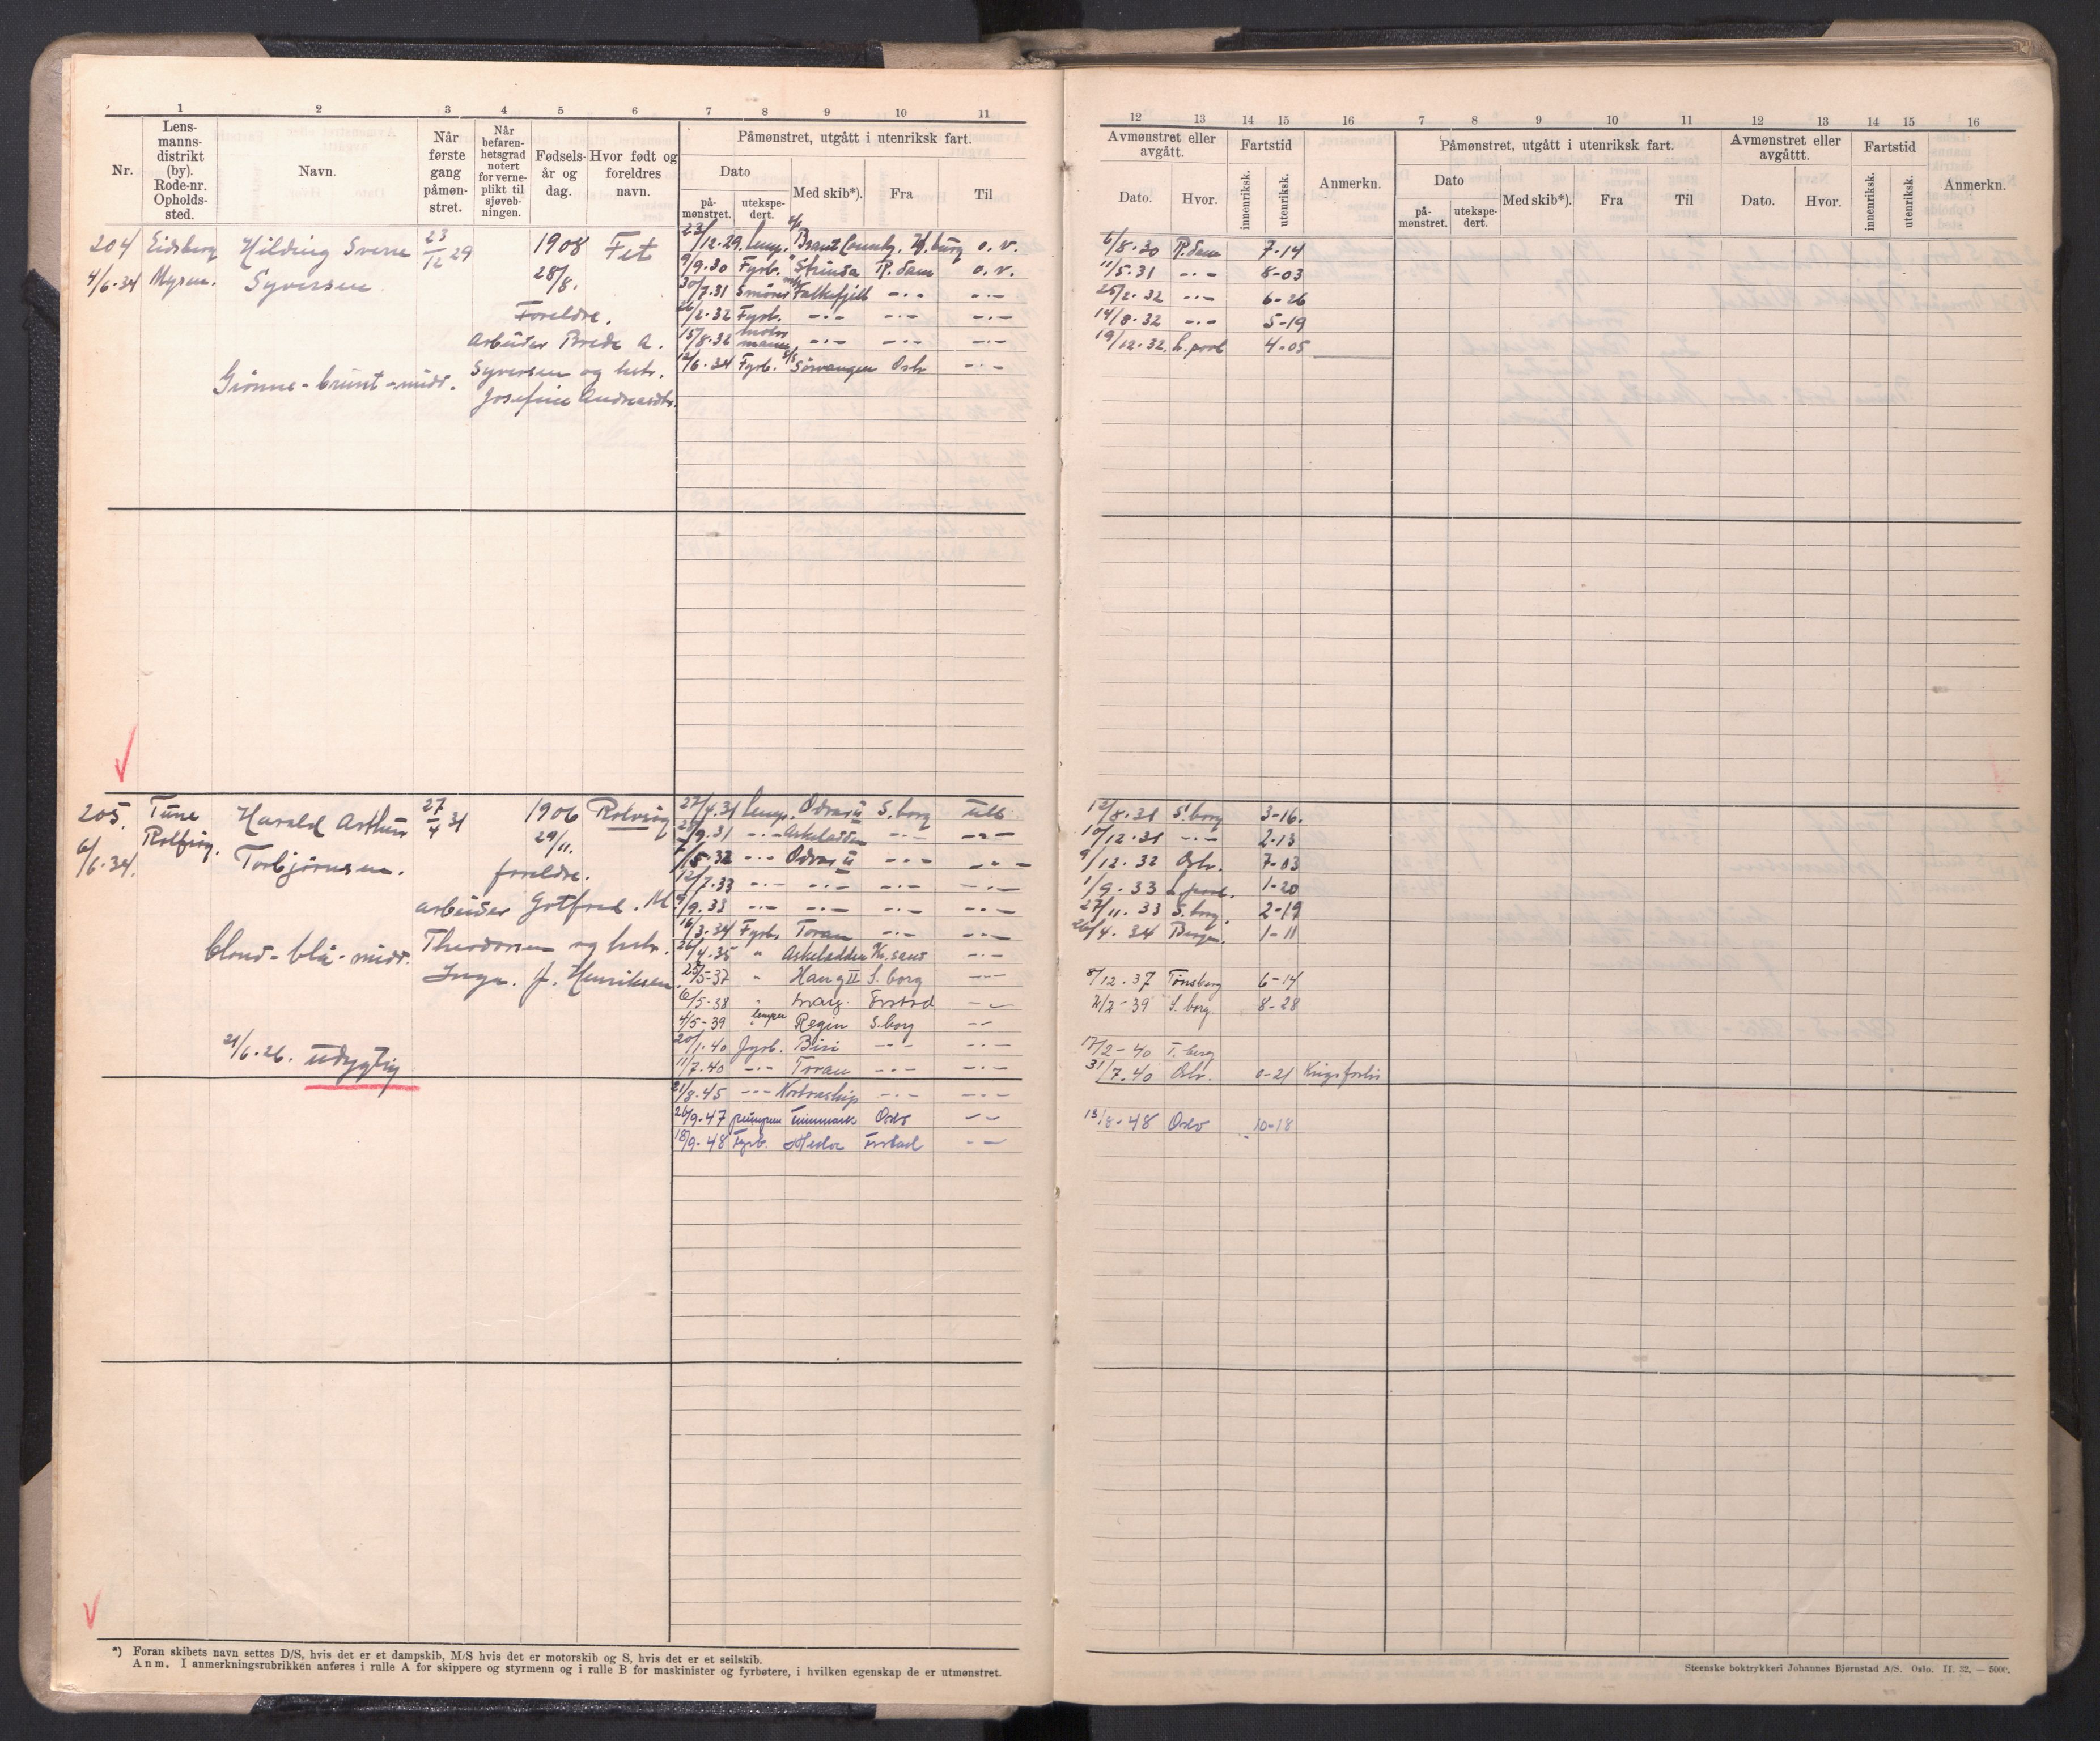 1 2 3 4 5 6 7 8 9 10 11
Nr.
Lens-
manns-
distrikt
(by).
Rode-nr.
Opholds-
sted.
Navn.
Når
første
gang
påmøn-
stret.
Når
befaren-
hetsgrad
notert
for verne-
plikt til
sjøveb-
ningen.
Fødsels-
år og
dag.
Hvor født og
foreldres
navn.
Påmønstret, utgått i utenriksk fart.
Dato
på-
mønstret.
utekspe-
dert.
Med skib*).
Fra
Til
204 Eidsberg Hilding Sverre 23/12 29 1908 Fet
4/6-34 Mysen. Syversen 28/8.
Foreldre.
Arbeider Brede A.
Syversen og hstr.
Josefine Andreasdtr.
Grønne-brunt-midd.
23/12.29. Lemp. Brant County. H.burg o.v.
9/9.30 Fyrb. Strinda R.dam o.v.
30/7.31 Smører Falkefjell -.- -.-
26/2.32 Fyrb. -.- -.- -.-
15/8.32 motormann -.- -.- -.-
12/6.34 Fyrb. S/S Sørvangen Oslo -.-
205. Tune Harald Arthur 27/4 31 1906 Rolvsøy
6/6.34. Rolfsøy. Torbjørnsen. 29/11.
foreldre.
arbeider Gotfred. M.
Theodorsen og hstr.
Inga. J. Henriksen.
blond-blå-midd.
21/6.26. udygtig
27/4.31 Lemp. Odvar II S.borg utls
28/9.31 -.- Askeladden -.- -.-
/5.32 -.- Odvar II -.- -.-
12/7.33 -.- -.- -.- -.-
9/9.33 -.- -.- -.- -.-
16/3.34 Fyrb. Toran -.- -.-
26/4.35 " Askeladden Kr.sand -.-
25/5-37 " Haug II S.borg -.-
6/5-38 " Erstad
4/5-39 lemper Regin S.borg -.-
20/1.40 fyrb. Bisi -.- -.-
11/7.40 -.- Toran -.- -.-
21/8.45 -.- Nortraship -.- -.-
26/9.47 Finnmark Oslo -.-
18/9.48 Fyrb. Hedar -.-
*) Foran skibets navn settes D/S, hvis det er et dampskib, M/S hvis det er motorskib og S, hvis det er et seilskib.
Anm. I anmerkningsrubrikken anføres i rulle A for skippere og styrmenn og i rulle B for maskinister og fyrbøtere, i hvilken egenskap de er utmønstret.
12 13 14 15 16 7 8 9 10 11 12 13 14 15 16
Avmønstret eller
avgått.
Dato.
Hvor.
Fartstid
innenriksk.
utenriksk.
Anmerkn.
Påmønstret, utgått i utenriksk fart.
Dato
på-
mønstret.
utekspe-
dert.
Med skib*).
Fra
Til
Avmønstret eller
avgåttt.
Dato.
Hvor.
Fartstid
innenriksk.
utenriksk.
Anmerkn.
6/8.30 R.dam 7-14
11/5.31 -.- 8-03
25/2.32 -.- 6-26
14/8.32 -.- 5-19
19/12.32. L.pool 4-05
12/8.31 S.borg 3-16.
10/12.31 -.- 2-13
9/12.32 Oslo. 7-03
1/9.33 L.pool. 1-20
27/11.33 S.borg. 2-19
26/4.34 Bergen. 1-11
8/12.37 Tønsberg 6-14
2/2-39 S.borg 8-28
17/2-40 T.berg
31/7.40 Oslo. 0-21 Krigsforlis
13/8.48 Oslo 10-18
Steenske boktrykkeri Johannes Bjørnstad A/S. Oslo. II. 32. — 5000.